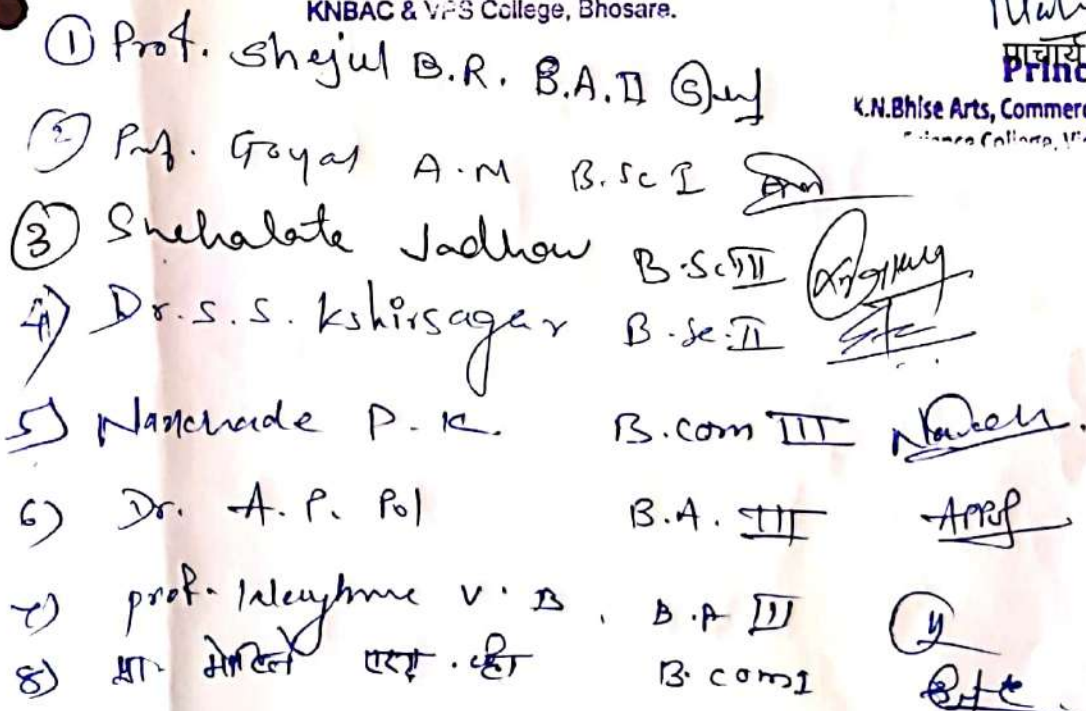 KNBAC & VPS College, Bhosare.
प्राचार्य
Princ
K.N.Bhise Arts, Commer
① Prof. Shejul B.R. B.A.II
② Prof. Goyal A.M B.Sc I
③ Snehalata Jadhav B.Sc.III
4) Dr. S. S. Kshirsagar B.Sc.II
5) Nanchade P. K. B.com III
6) Dr. A. P. Pol B.A. III
7) prof. V. B. B.A III
8) प्रा B.com I